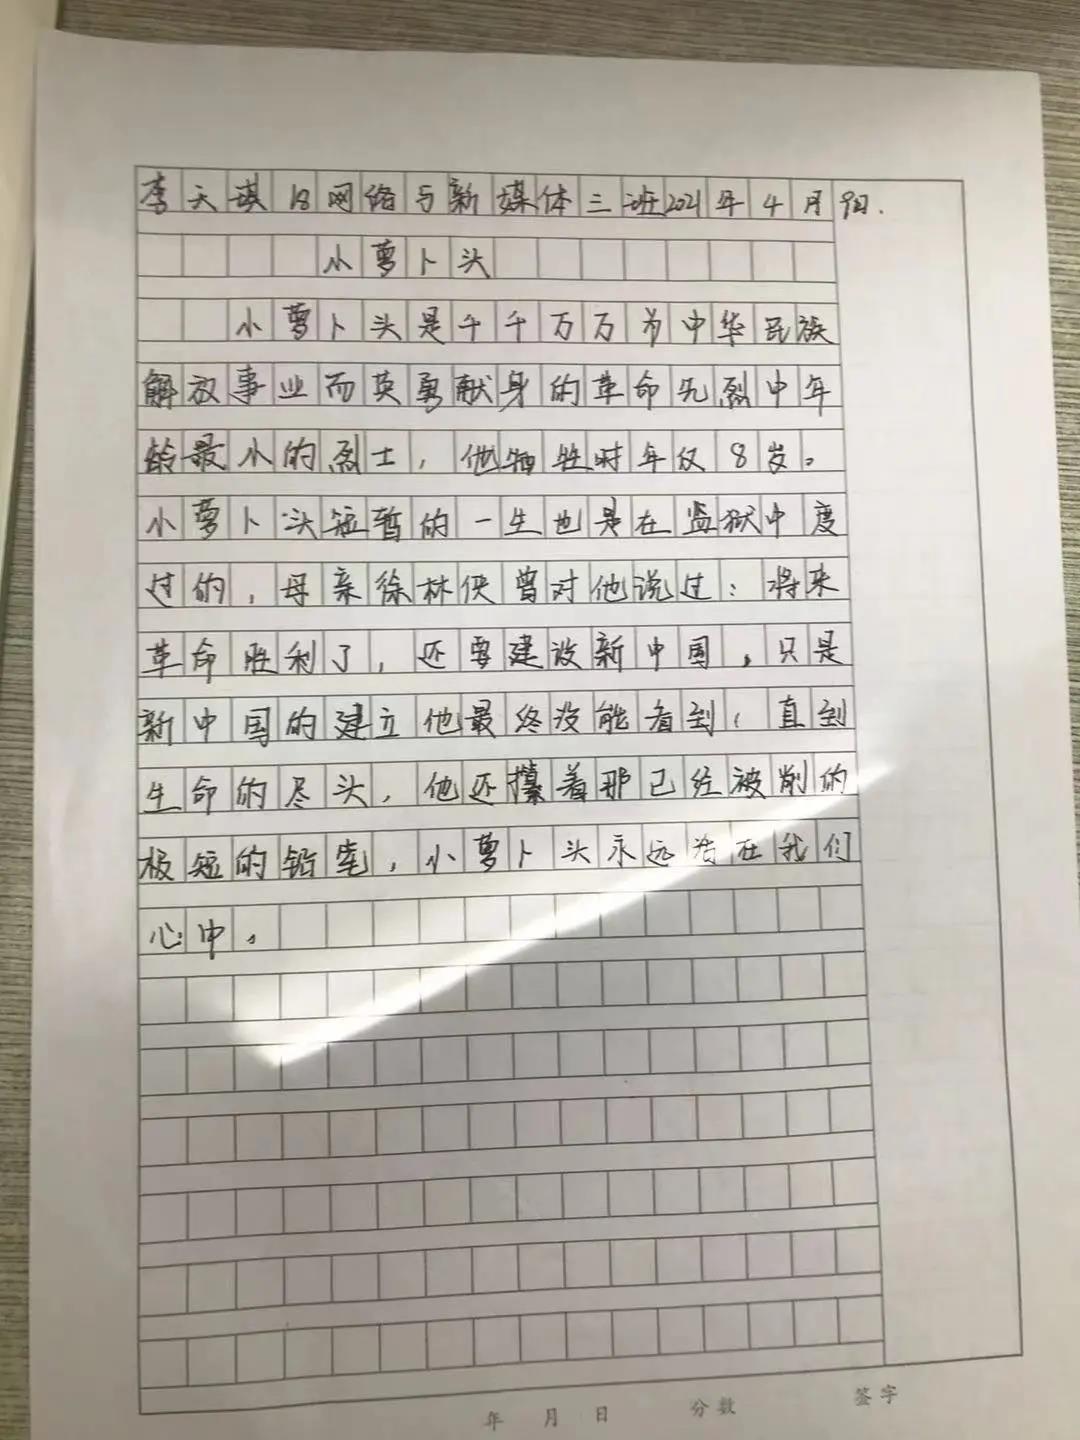 李天琪 18网络与新媒体三班2021年4月9日.
小萝卜头
小萝卜头是千千万万为中华民族
解放事业而英勇献身的革命先烈中年
龄最小的烈士，他牺牲时年仅8岁。
小萝卜头短暂的一生也是在监狱中度
过的，母亲徐林侠曾对他说过：将来
革命胜利了，还要建设新中国，只是
新中国的建立他最终没能看到，直到
生命的尽头，他还攥着那已经被削的
极短的铅笔，小萝卜头永远活在我们
心中。
年 月 日 分数 签字